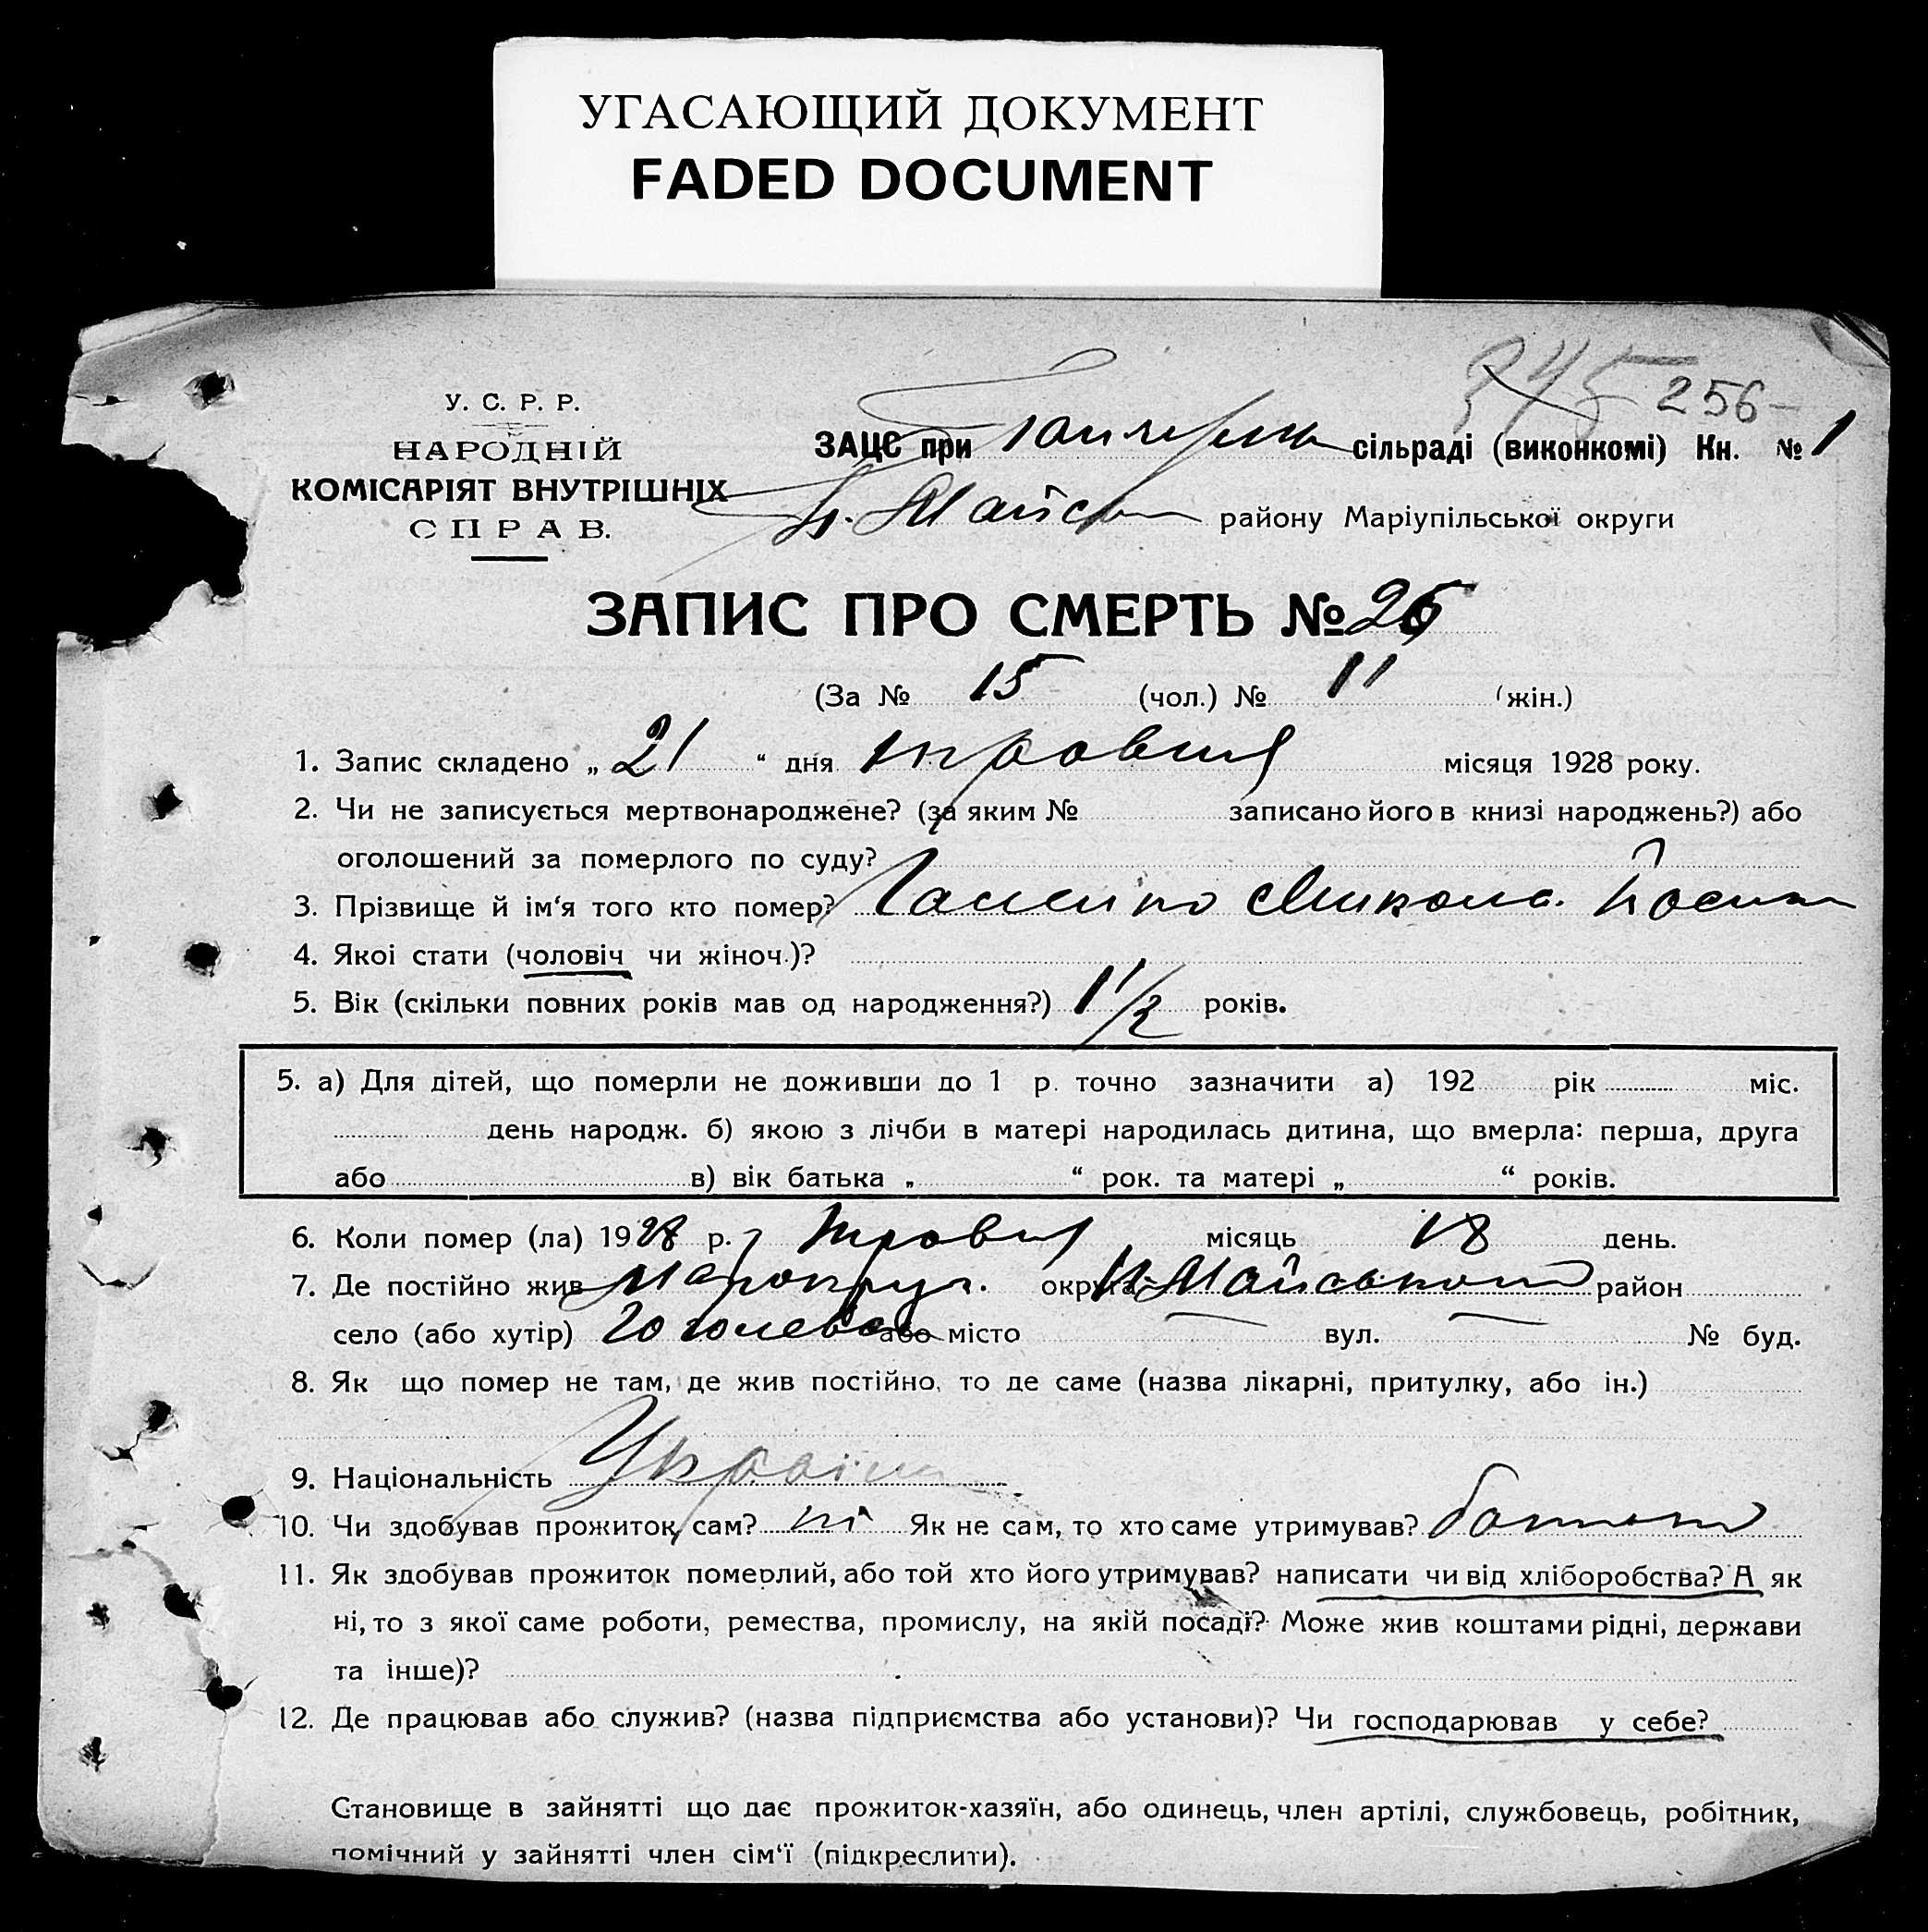 УГАСАЮЩИЙ ДОКУМЕНТ
FADED DOCUMENT
345 256
У. С. Р. Р.
НАРОДНІЙ
КОМІСАРІЯТ ВНУТРІШНІХ
СПРАВ.
ЗАЦС при сільраді (виконкомі) Кн. № 1
району Маріупільської округи
ЗАПИС ПРО СМЕРТЬ № 26
(За № 15 (чол.) № 11 (жін.)
1. Запис складено „ 21 “ дня травня місяця 1928 року.
2. Чи не записується мертвонароджене? (за яким № записано його в книзі народжень?) або
оголошений за померлого по суду?
3. Прізвище й ім‘я того кто помер? Микола Йосип
4. Якоі стати (чоловіч чи жіноч.)?
5. Вік (скільки повних років мав од народження?) 1 1/2 років.
5. а) Для дітей, що померли не доживши до 1 р. точно зазначити а) 192 рік міс.
день народж. б) якою з лічби в матері народилась дитина, що вмерла: перша, друга
або в) вік батька „ “ рок. та матері „ “ років.
6. Коли помер (ла) 1928 р. травня місяць 18 день.
7. Де постійно жив округа район
село (або хутір) або місто вул. № буд.
8. Як що помер не там, де жив постійно, то де саме (назва лікарні, притулку, або ін.)
9. Національність Україн
10. Чи здобував прожиток сам? ні Як не сам, то хто саме утримував? батько
11. Як здобував прожиток померлий, або той хто його утримував? написати чи від хліборобства? А як
ні, то з якої саме роботи, ремества, промислу, на якій посаді? Може жив коштами рідні, держави
та інше)?
12. Де працював або служив? (назва підприємства або установи)? Чи господарював у себе?
Становище в зайнятті що дає прожиток-хазяїн, або одинець, член артілі, службовець, робітник,
помічний у зайнятті член сім‘ї (підкреслити).